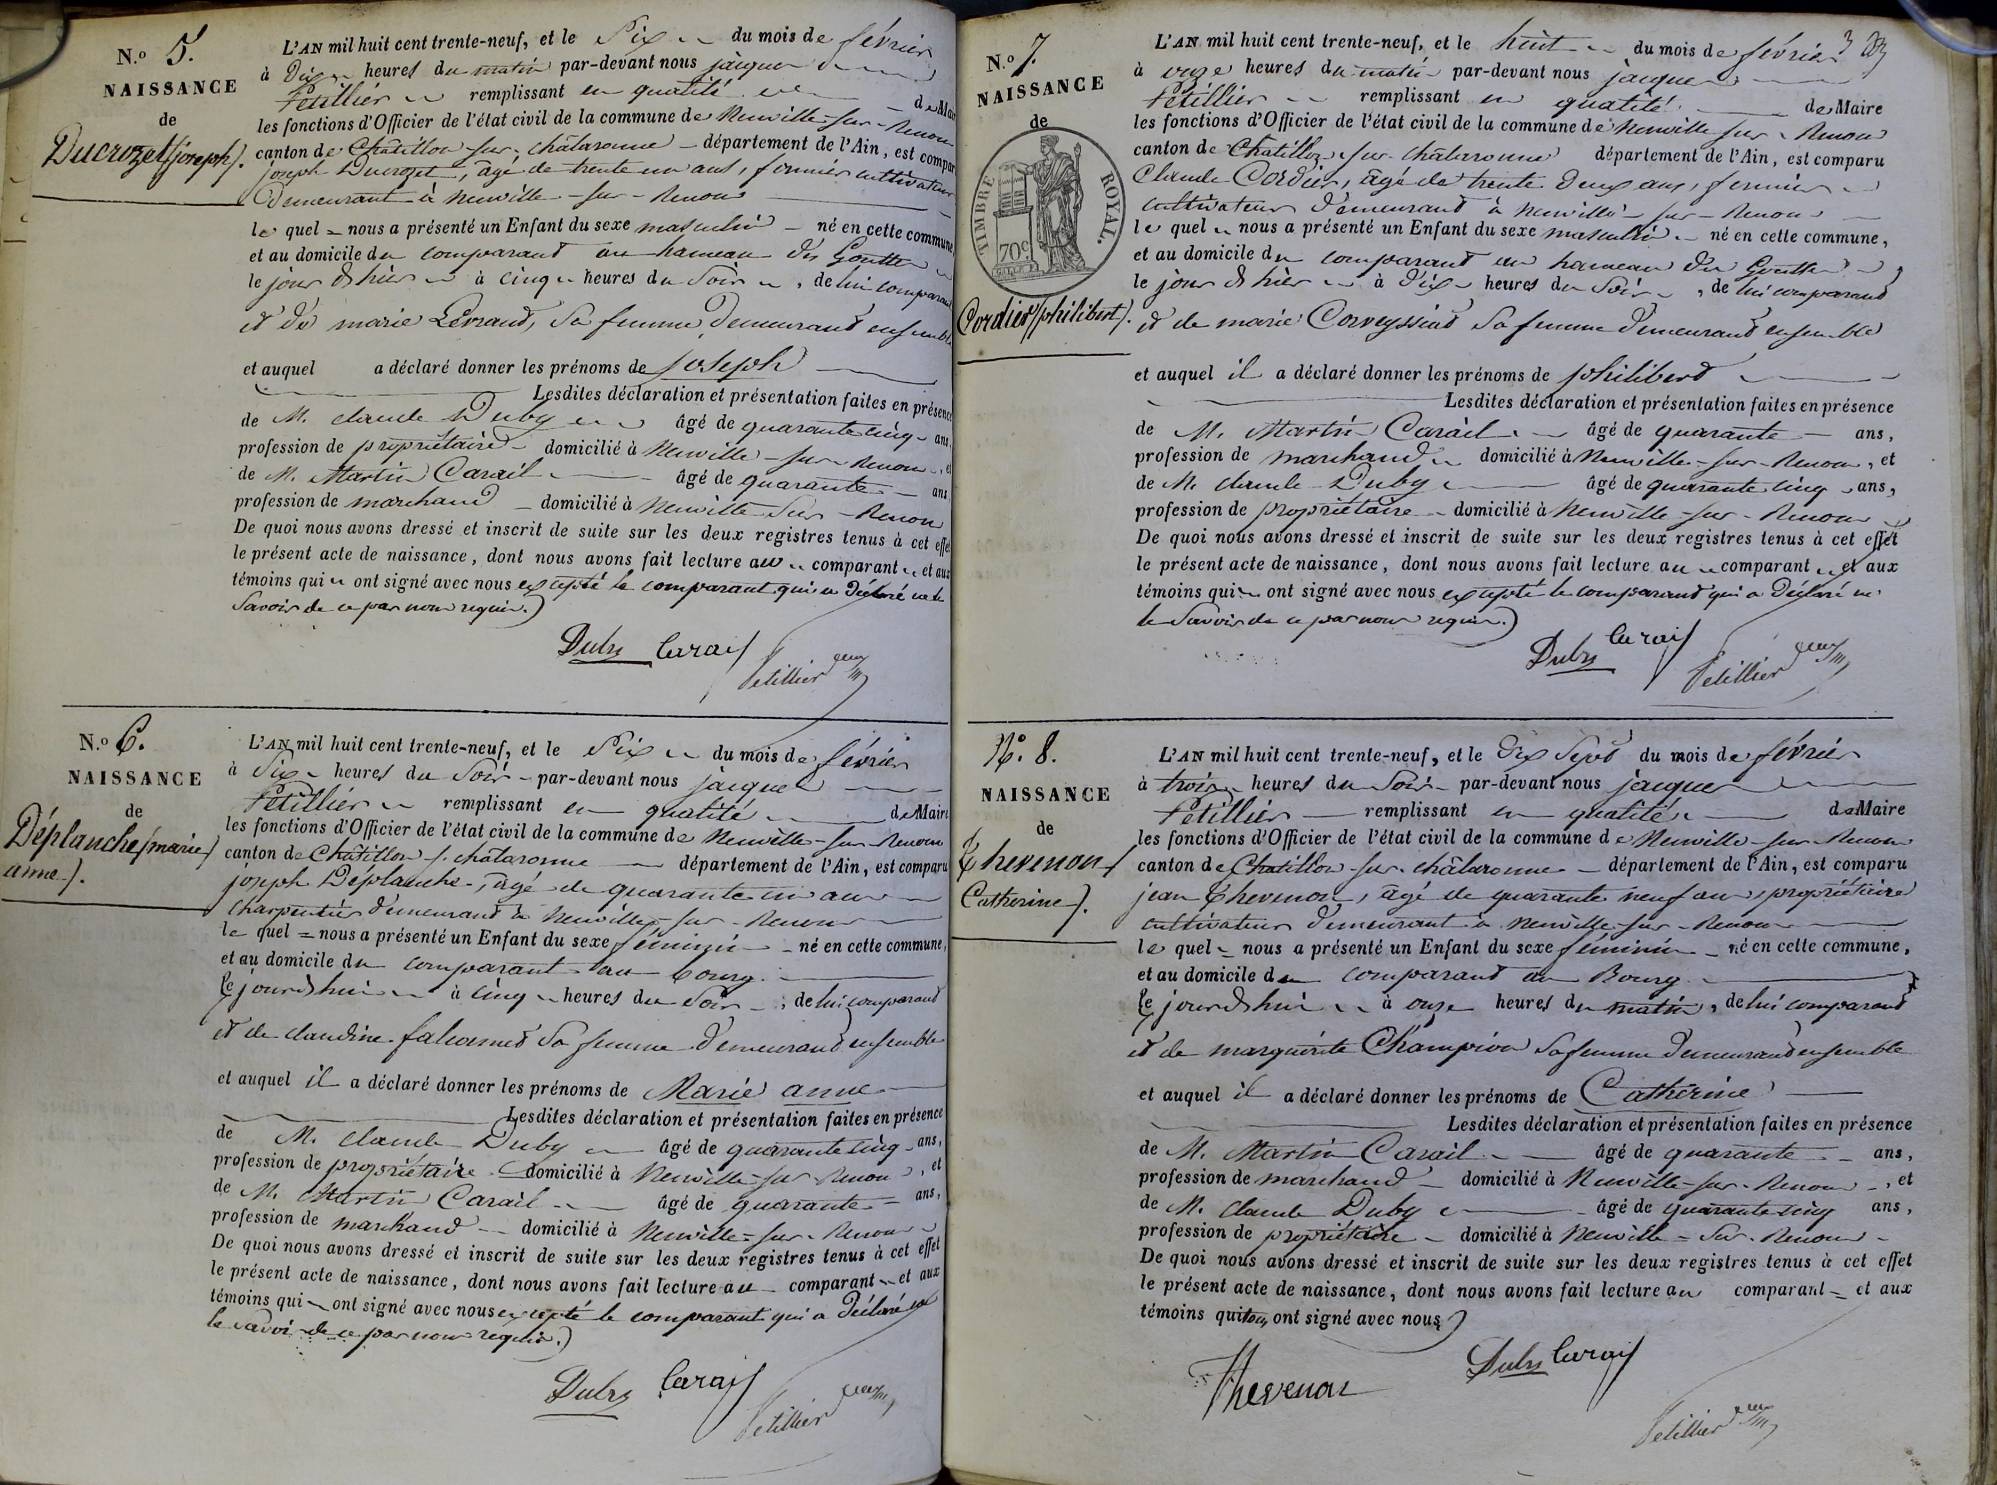 N.o 5.
NAISSANCE
de
Ducrozet (joseph).
L'AN mil huit cent trente-neuf, et le Six du mois de février
à Dix heures du matin par-devant nous jacques
Petillier remplissant en qualité de Mair
les fonctions d'Officier de l'état civil de la commune de Neuville-sur-Renom
canton de Châtillon-sur-châlaronne département de l'Ain, est compar
joseph Ducrozet, âgé de trente un ans, fermier cultivateur
Demeurant à Neuville-sur-Renom
le quel nous a présenté un Enfant du sexe masculin né en cette commune
et au domicile du comparant au hameau des Goutte
le jour d'hier à cinq heures du Soir, de lui comparant
et de marie Levraud, Sa femme Demeurand ensemble
et auquel a déclaré donner les prénoms de joseph
Lesdites déclaration et présentation faites en présence
de M. claude Duby âgé de quarante cinq ans,
profession de propriétaire domicilié à Neuville-sur-Renom, et
de M. Martin Carail âgé de quarante ans
profession de marchand domicilié à Neuville Sur-Renom
De quoi nous avons dressé et inscrit de suite sur les deux registres tenus à cet effet
le présent acte de naissance, dont nous avons fait lecture au comparant et aux
témoins qui ont signé avec nous excepté le comparant qui a Déclaré ne le
Savoir de ce par nous requis.)
Duby Carail
Petillier
N.o 6.
NAISSANCE
de
Déplanche (marie
anne).
L'AN mil huit cent trente-neuf, et le Six du mois de février
à Six heures du Soir par-devant nous jacques
Petillier remplissant en qualité de Maire
les fonctions d'Officier de l'état civil de la commune de Neuville-sur-Renom
canton de Châtillon s. châlaronne département de l'Ain, est comparu
joseph Déplanche, âgé de quarante un ans
Charpentier demeurand à Neuville-sur-Renom
le quel nous a présenté un Enfant du sexe féminin né en cette commune,
et au domicile du comparant au bourg
le jourd'hui à cinq heures du Soir, de lui comparand
et de claudine Sa femme Demeurand ensemble
et auquel il a déclaré donner les prénoms de Marie anne
Lesdites déclaration et présentation faites en présence
de M. claude Duby âgé de quarante cinq ans,
profession de propriétaire domicilié à Neuville-sur-Renom, et
de M. Martin Carail âgé de quarante ans,
profession de marchand domicilié à Neuville-sur-Renom
De quoi nous avons dressé et inscrit de suite sur les deux registres tenus à cet effet
le présent acte de naissance, dont nous avons fait lecture au comparant et aux
témoins qui ont signé avec nous excepté le comparant qui a Déclaré ne
le savoir de ce par nous requis.)
Duby Carail
Petillier
N.o 7.
NAISSANCE
de
TIMBRE ROYAL.
70c
Cordier (philibert).
L'AN mil huit cent trente-neuf, et le huit du mois de février 3
à onze heures du matin par-devant nous jacques
Petillier remplissant en qualité de Maire
les fonctions d'Officier de l'état civil de la commune de Neuville sur-Renom
canton de Châtillon-sur-châlaronne département de l'Ain, est comparu
Claude Cordier, âgé de trente Deux ans, fermier
cultivateur Demeurand à Neuville-sur-Renom
le quel nous a présenté un Enfant du sexe masculin né en cette commune,
et au domicile du comparand au hameau des Goutte
le jour d'hier à Dix heures du Soir, de lui comparand
et de marie Corveyssiat Sa femme Demeurand ensemble
et auquel il a déclaré donner les prénoms de philiberd
Lesdites déclaration et présentation faites en présence
de M. Martin Carail âgé de quarante ans,
profession de marchand domicilié à Neuville-sur-Renom, et
de M. claude Duby âgé de quarante cinq ans,
profession de propriétaire domicilié à Neuville-sur-Renom
De quoi nous avons dressé et inscrit de suite sur les deux registres tenus à cet effet
le présent acte de naissance, dont nous avons fait lecture au comparant et aux
témoins qui ont signé avec nous excepté le comparand qui a Déclaré ne
le Savoir de ce par nous requis.)
Duby Carail
Petillier
N.o 8.
NAISSANCE
de
Thevenon (
Catherine).
L'AN mil huit cent trente-neuf, et le Dix Sept du mois de février
à trois heures du Soir par-devant nous jacques
Petillier remplissant en qualité de Maire
les fonctions d'Officier de l'état civil de la commune de Neuville-sur-Renom
canton de Châtillon-sur-châlaronne département de l'Ain, est comparu
jean Thevenon, âgé de quarante neuf ans, propriétaire
cultivateur Demeurant à Neuville-sur-Renom
le quel nous a présenté un Enfant du sexe féminin né en cette commune,
et au domicile du comparand au Bourg
le jourd'hui à onze heures du matin, de lui comparand
et de marguerite Champion Sa femme Demeurand ensemble
et auquel il a déclaré donner les prénoms de Catherine
Lesdites déclaration et présentation faites en présence
de M. Martin Carail âgé de quarante ans,
profession de marchand domicilié à Neuville-sur-Renom, et
de M. claude Duby âgé de quarante cinq ans,
profession de propriétaire domicilié à Neuville-Sur-Renom
De quoi nous avons dressé et inscrit de suite sur les deux registres tenus à cet effet
le présent acte de naissance, dont nous avons fait lecture au comparant et aux
témoins qui tous ont signé avec nous)
Thevenon Duby Carail
Petillier